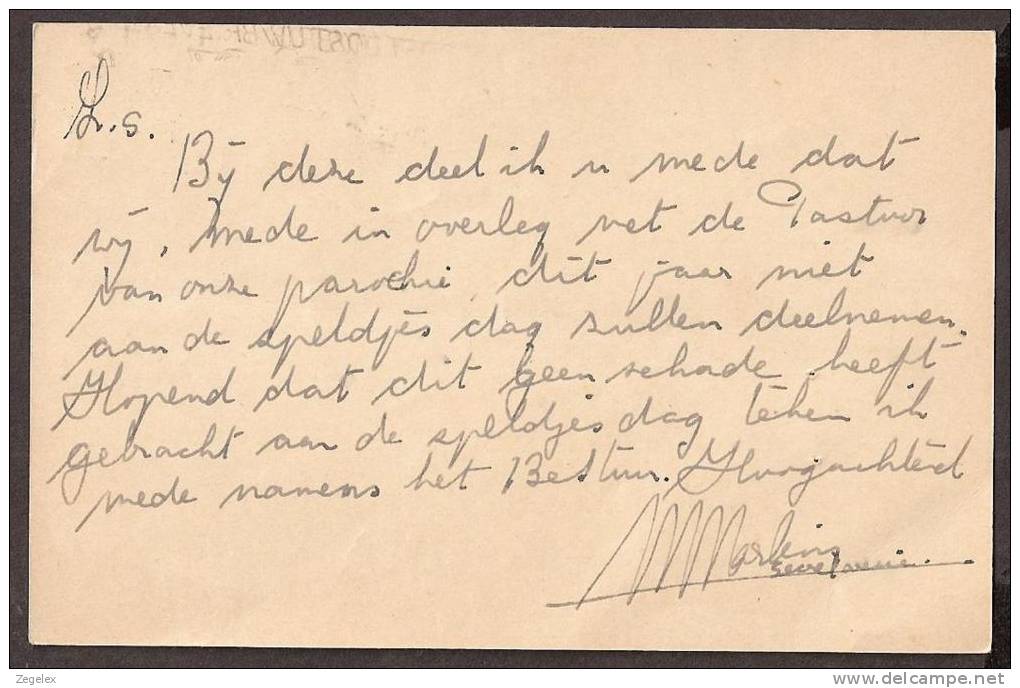 L.s.
Bij deze deel ik u mede dat
wij, mede in overleg met de Pastoor
van onze parochie, dit jaar niet
aan de speldjes dag zullen deelnemen.
Hopend dat dit geen schade heeft
gebracht aan de speldjesdag teken ik
mede namens het Bestuur. Hoogachtend
Secretaris.
Zegelex
www.delcampe.net